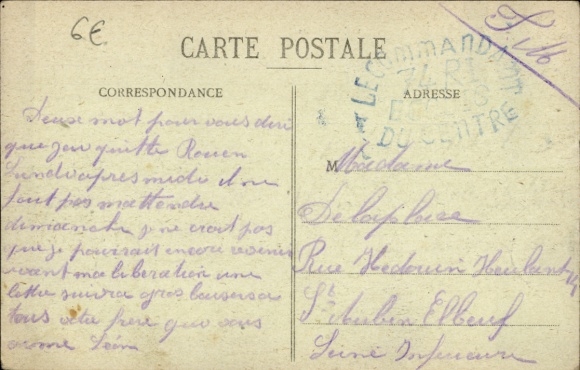 6€
F.M.
CARTE POSTALE
LE COMMANDANT
DU CENTRE
CORRESPONDANCE
ADRESSE
Deuse mot pour vous dire
que jai quitte Rouen
Lundi apres midi il ne
faut pas mattendre
dimanche je ne croit pas
que je pourrait encore revenir
avant ma liberation une
lettre suivra gros baiser a
tous votre frere qui vous
aime Léon
Madame
Delaplace
Rue Hedouin Heulant 4
St Aubin Elbeuf
Seine Inferieure